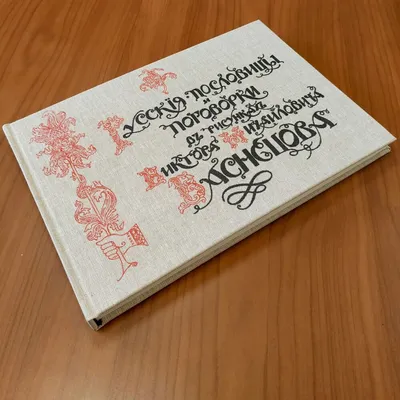 Русскія пословицы
и
поговорки
въ рисункахъ
Виктора Михайловича
Васнецова